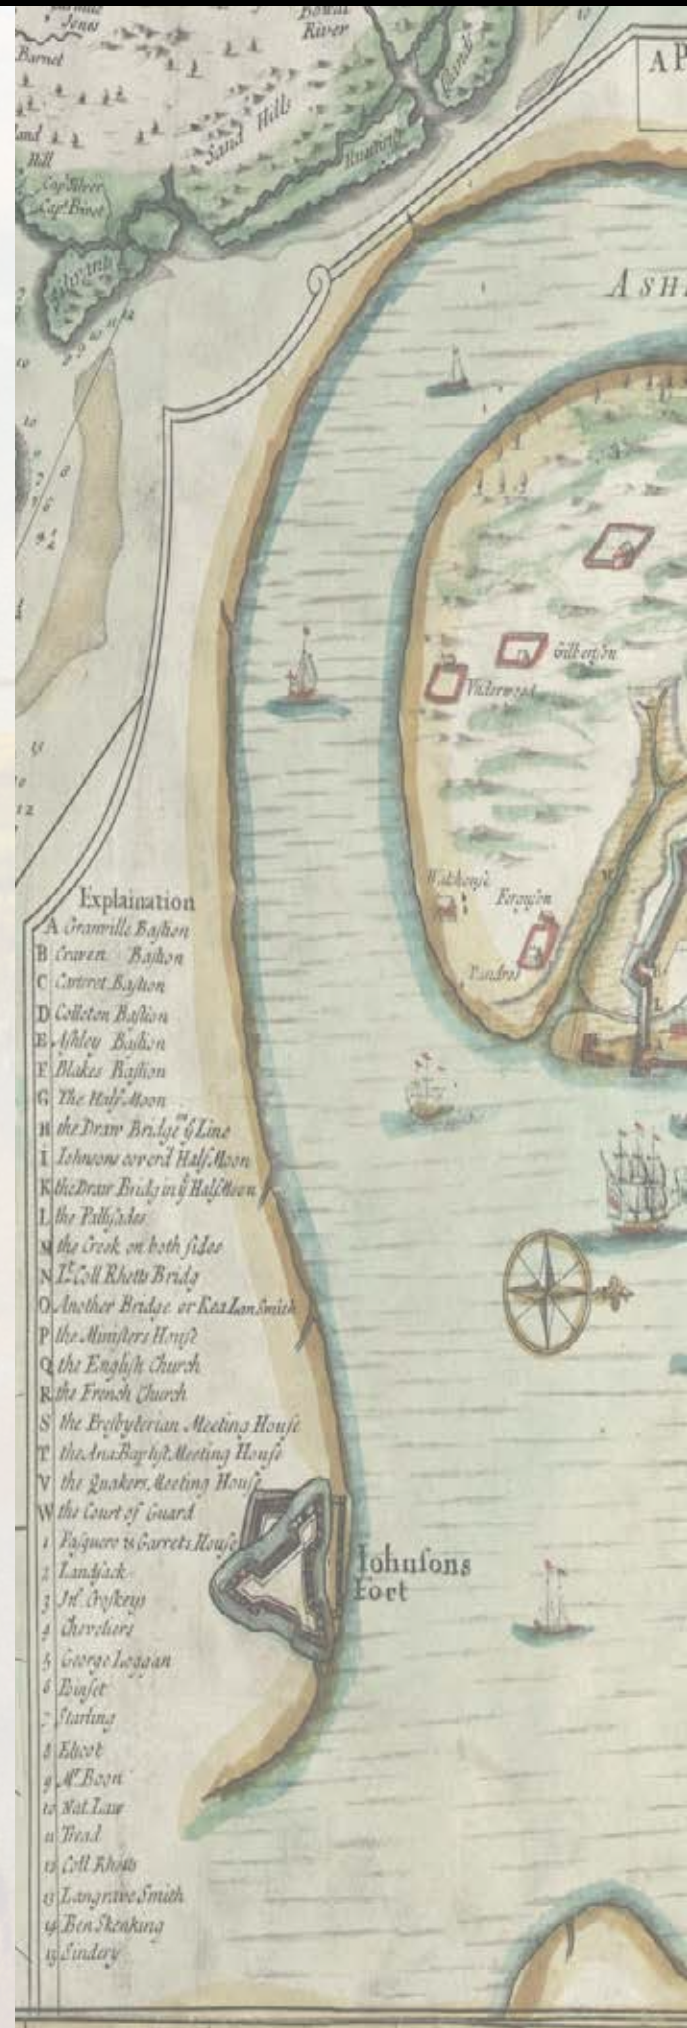 Jones
Bowal
River
Barnet
Sand Hills
Hill
Runting
Sand
A P
ASH
10
11
12
Gilbertson
Underwood
Watchouse
Ferguson
Explaination
A Granville Baſtion
B Craven Baſtion
C Carteret Baſtion
D Colleton Baſtion
E Aſhley Baſtion
F Blakes Baſtion
G The Half Moon
H the Draw Bridge in ẙ Line
I Iohnsons coverd Half Moon
K the Draw Bridg in ẙ Half Moon
L the Palliſades
M the Creek on both ſides
N Lt Coll Rhetts Bridg
O Another Bridge or Kea Lan Smith
P the Miniſters Houſe
Q the Engliſh Church
R the French Church
S the Preſbyterian Meeting Houſe
T the Ana Baptiſt Meeting Houſe
V the Quakers Meeting Houſe
W the Court of Guard
1 Paſquero & Garrets Houſe
2 Landſack
3 Jno Croſkeys
4 Cheveliers
5 George Loggan
6 Poinſet
7 Starling
8 Elicot
9 Mr Boon
10 Nat Law
11 Tread
12 Coll Rhetts
13 Langrave Smith
14 Ben Skenking
15 Sindery
Iohnſons
Fort